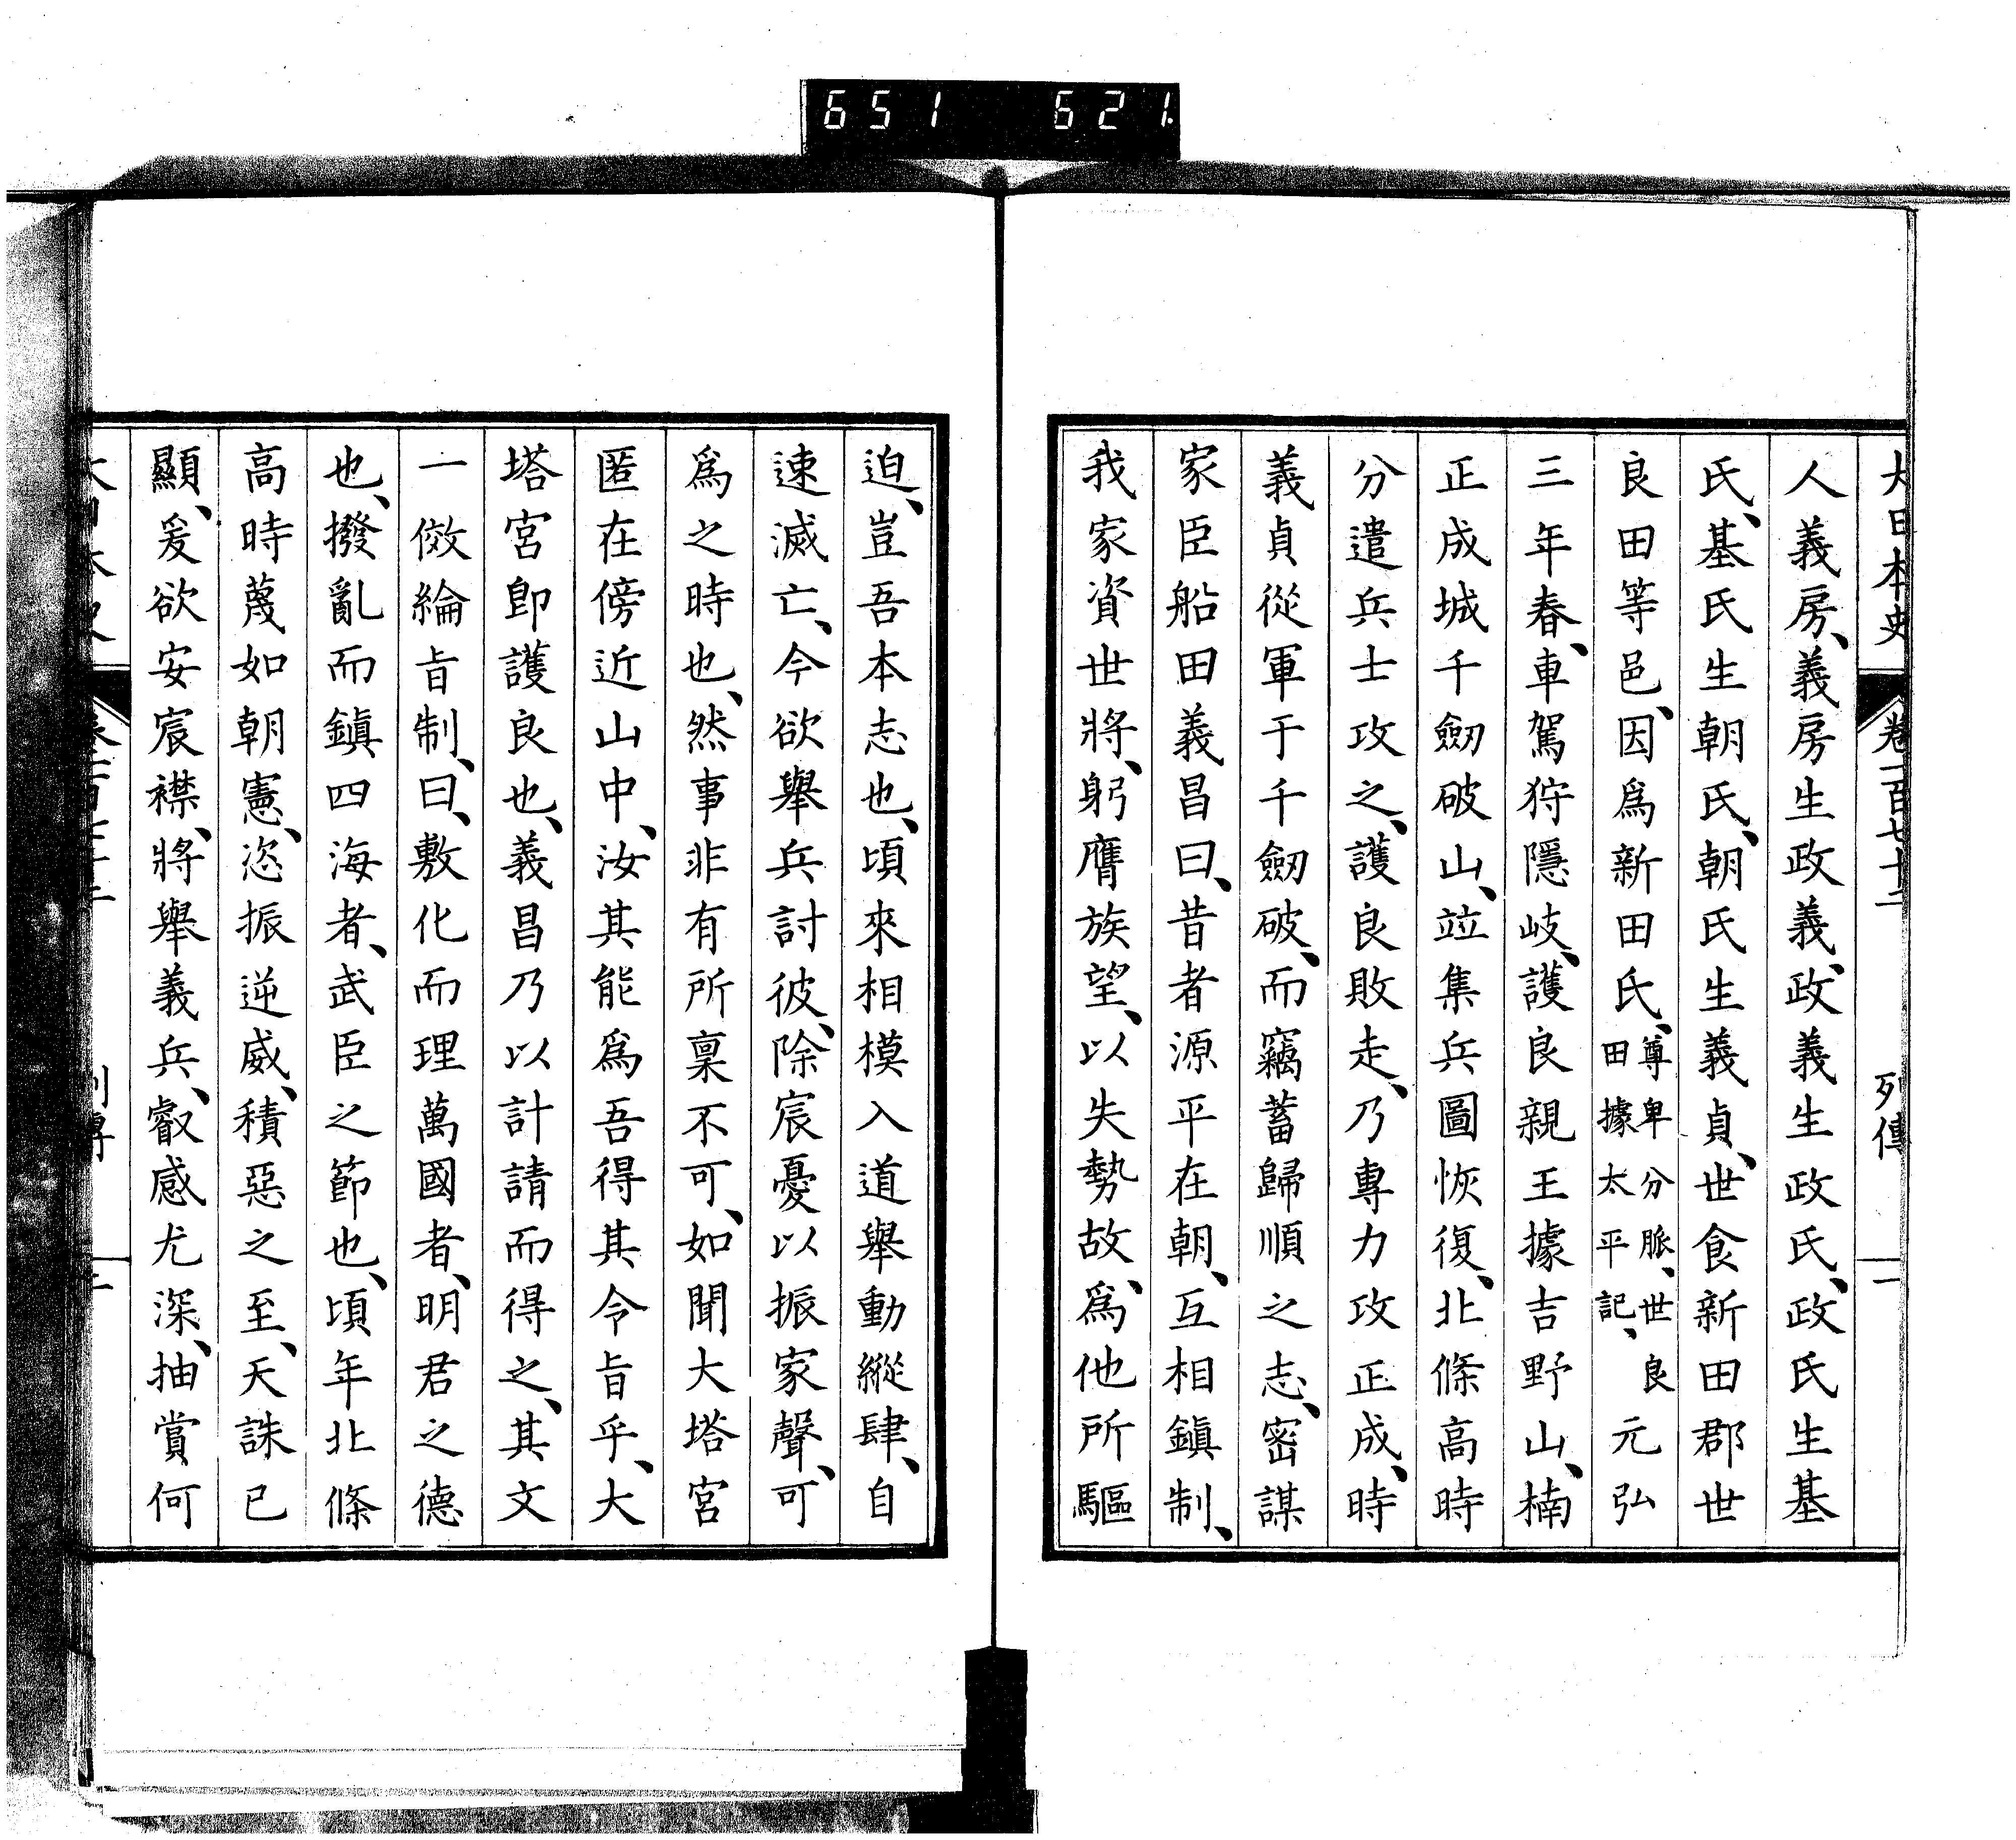 651 621
大日本史 卷一百七十二 列傳 一
人義房、義房生政義、政義生政氏、政氏生基
氏、基氏生朝氏、朝氏生義貞、世食新田郡世
良田等邑、因爲新田氏、尊卑分脈、世良田據太平記、元弘
三年春、車駕狩隱岐、護良親王據吉野山、楠
正成城千劒破山、竝集兵圖恢復、北條高時
分遣兵士攻之、護良敗走、乃專力攻正成、時
義貞從軍于千劒破、而竊蓄歸順之志、密謀
家臣船田義昌曰、昔者源平在朝、互相鎭制、
我家資世將、躬膺族望、以失勢故、爲他所驅
迫、豈吾本志也、頃來相模入道舉動縱肆、自
速滅亡、今欲舉兵討彼、除宸憂以振家聲、可
爲之時也、然事非有所稟不可、如聞大塔宮
匿在傍近山中、汝其能爲吾得其令旨乎、大
塔宮卽護良也、義昌乃以計請而得之、其文
一倣綸旨制、曰、敷化而理萬國者、明君之德
也、撥亂而鎭四海者、武臣之節也、頃年北條
高時蔑如朝憲、恣振逆威、積惡之至、天誅已
顯、爰欲安宸襟、將舉義兵、叡感尤深、抽賞何